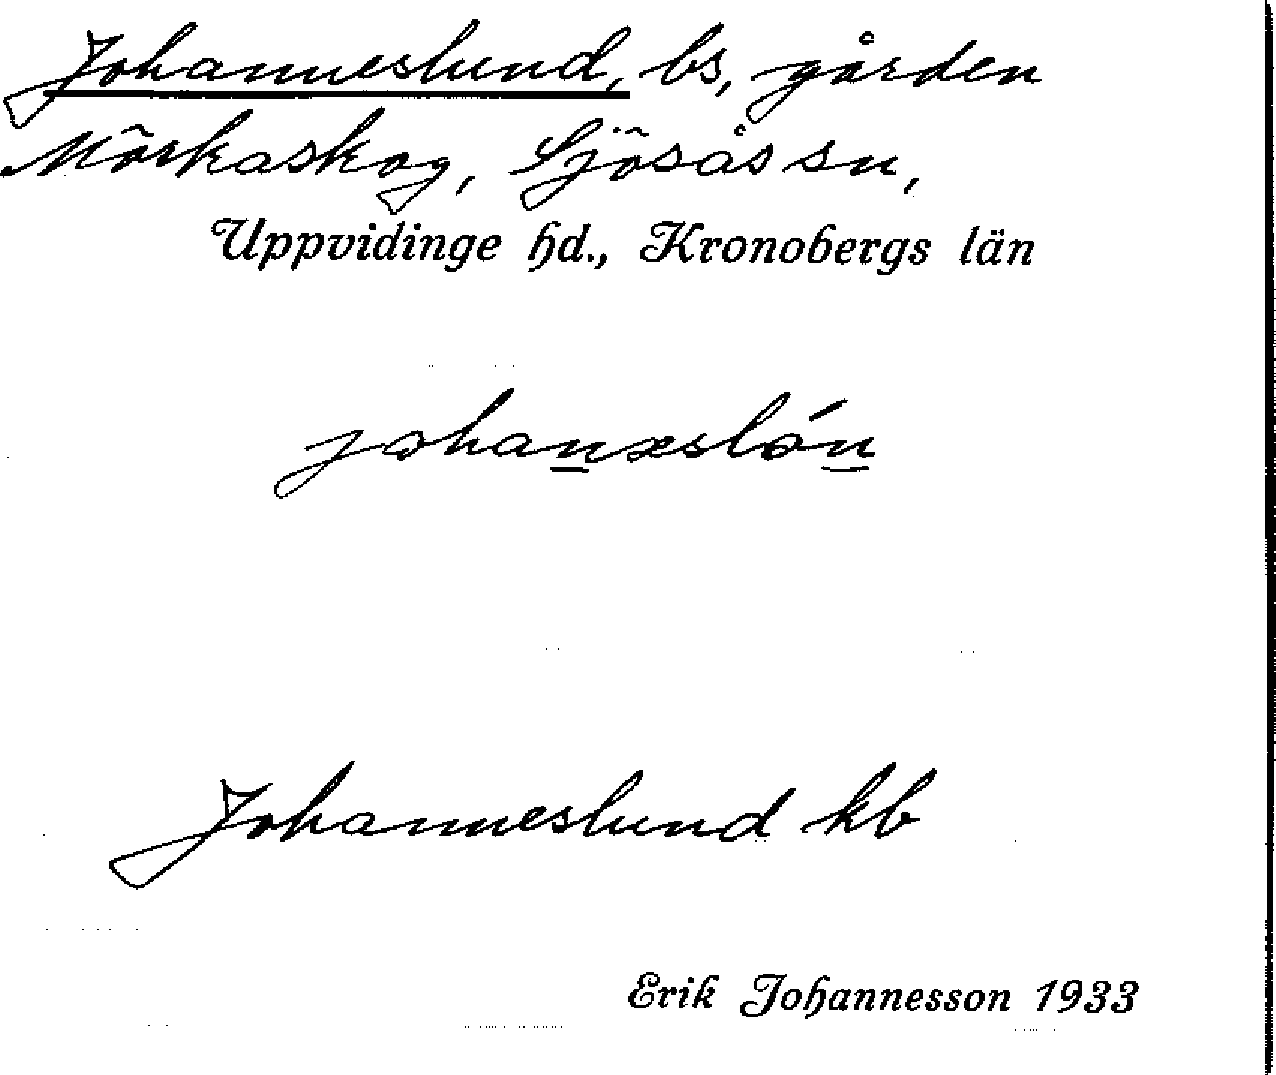 Johanneslund, bs, gården
Mörkaskog, Sjösås sn,
Uppvidinge hd., Kronobergs län
johan̲əslón̲
Johanneslund kb
Erik Johannesson 1933